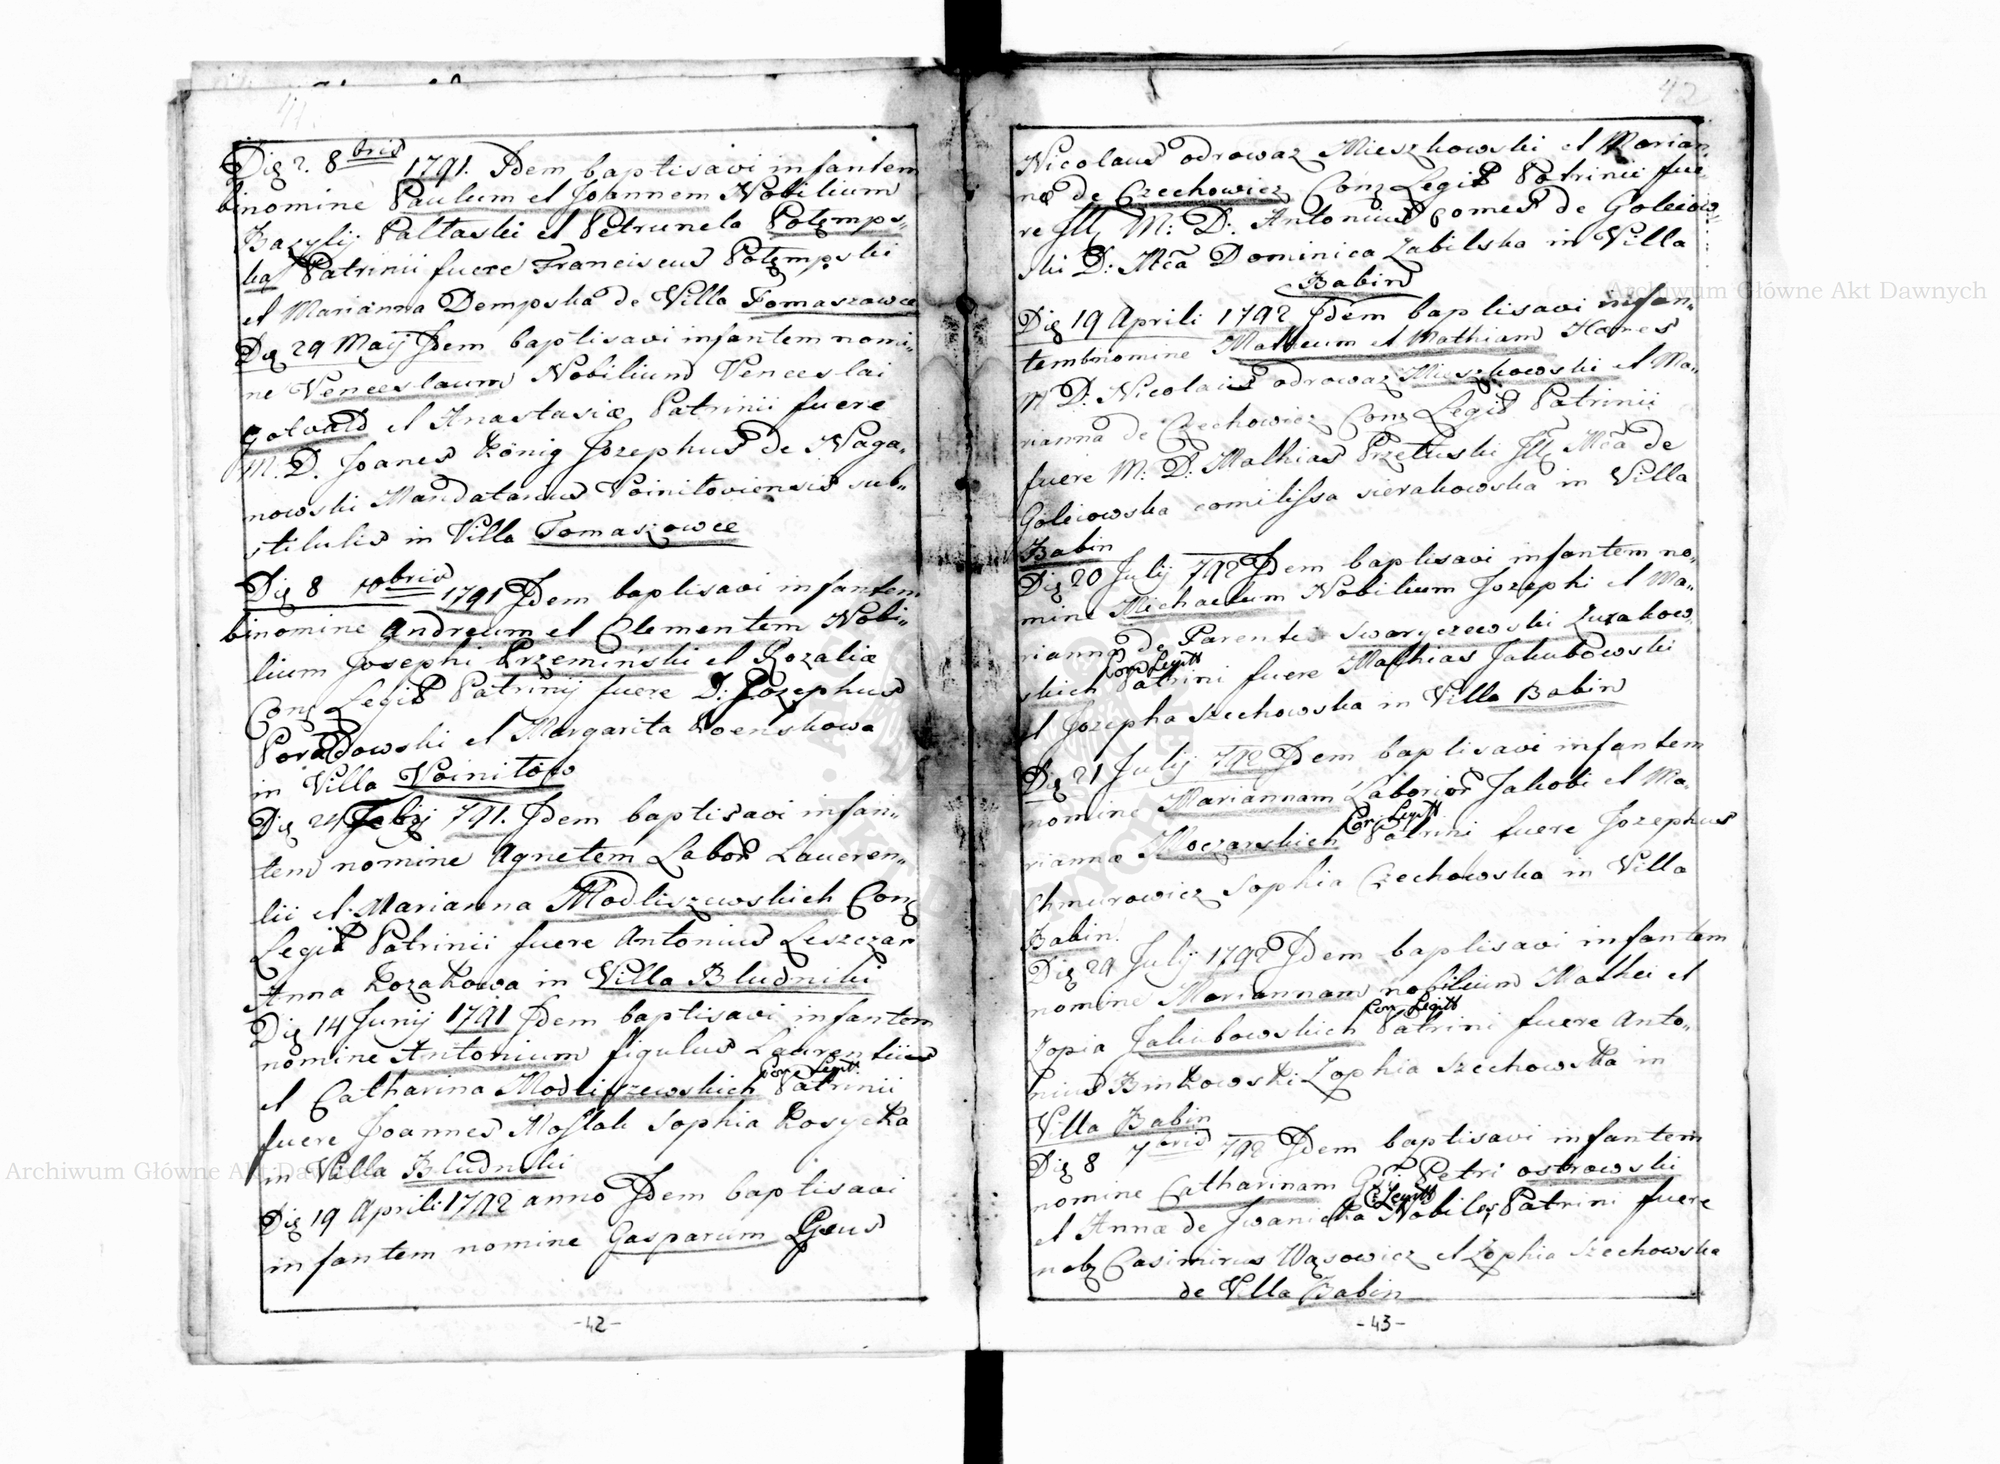 41
Die 2. 8bris 1791. Idem baptisavi infantem
binomine Paulum et Joannem Nobilium
Bazylij Paltaski et Petrunela Potemps-
ka Patrinii fuere Franciscus Potempski
et Marianna Dempska de Villa Tomaszowce
Die 29 Maij Idem baptisavi infantem nomi-
ne Venceslaum Nobilium Venceslai
Gotvald et Anastasiæ Patrinii fuere
M. D. Joanes König Jozephus de Naga-
nowski Mandatarius Voinitoviensis sub-
stitutis in Villa Tomaszowce
Die 8 10bris 1791 Idem baptisavi infantem
binomine Andreum et Clementem Nobi-
lium Josephi Przemiński et Rozaliæ
Conz Legitt Patrinij fuere D: Jozephus
Poradowski et Margarita Koenskowa
in Villa Voinitow
Die 24 Febrij 791. Idem baptisavi infan-
tem nomine Agnetem Labor Laueren-
tii et Marianna Modliszewskich Conz
Legitt Patrinii fuere Antonius Leszczar
Anna Kozakowa in Villa Bludniki
Die 14 Junij 1791 Idem baptisavi infantem
nomine Antonium figulus Laurentius
et Catharina Modliszewskich Con Legitt Patrinii
fuere Joannes Moslak Sophia Kosycka
in Villa Bludniki
Die 19 Aprili 1792 anno Idem baptisavi
infantem nomine Gasparum
-42-
42
Nicolaus odrowaz Mieszkowski et Marian-
næ de Czechowicz Conz Legitt Patrinii fue-
re Ill M: D: Antonius Comes de Goleiow-
ski D: Mca Dominica Zabilska in Villa
Babin
Die 19 Aprili 1792 Idem baptisavi infan-
tem binomine Matteum et Mathiam
M D: Nicolaus odrowaz Mieszkowski et Ma-
rianna de Czechowicz Conz Legitt Patrinii
fuere M: D: Mathias Przetuski Ill Mca de
Goleiowska comitissa sierakowska in Villa
Babin
Die 20 July 792 Idem baptisavi infantem no-
mine Michaelum Nobilium Jozephi et Ma-
rianna de Parente Swaryczewski Zurakow
skich Con Legitt Patrini fuere Mathias Jakubowski
et Jozepha Szechowska in Villa Babin
Die 21 July 792 Idem baptisavi infantem
nomine Mariannam Laborior Jakobi et Ma-
riannæ Moczarskich Con Legitt Patrini fuere Jozephus
Chmurowicz Sophia Czechowska in Villa
Babin.
Die 29 July 1792 Idem baptisavi infantem
nomine Mariannam nobilium Mathei et
Zopia Jakubowskich Con Legitt Patrini fuere Anto-
nius Binkowski Zophia Szechowska in
Villa Babin
Die 8 7bris 792 Idem baptisavi infantem
nomine Catharinam Petri ostrowski
et Annæ de Iwanicka C: Legitt Nobiles Patrini fuere
nob Casimirus Wąsowicz et Zophia Szechowska
de Villa Babin
-43-
Archiwum Główne Akt Dawnych
Archiwum Główne Akt Dawnych